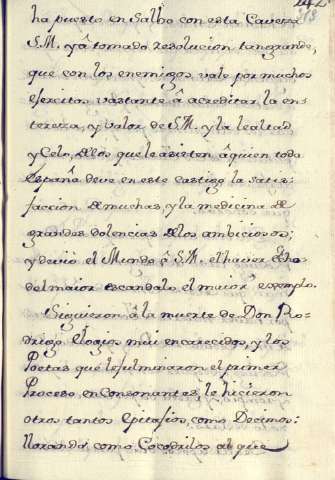 ha puesto en Salbo con esta Caveza
S.M. yâ tomado resolucion tan grande,
que con los enemigos, vale por muchos
esercitos vastante â acreditar la en-
tereza, y valor de S.M. y la lealtad,
y Celo, de los que le asisten â quien toda
España deve en este castigo la satis-
faccion de muchas, y la medicina de
grandes dolencias de los ambiciosos;
y devio el Mundo â S.M. el haver hecho
del maior escandalo, el maior exemplo.
Siguieron â la muerte de Don Ro-
drigo Elogios mui encarecidos, y los
Poetas que le fulminaron el primer
Proceso, en Consonantes, le hicieron
otros tantos Epitafios, como Decimos:
llorando como Cocodrilos al que